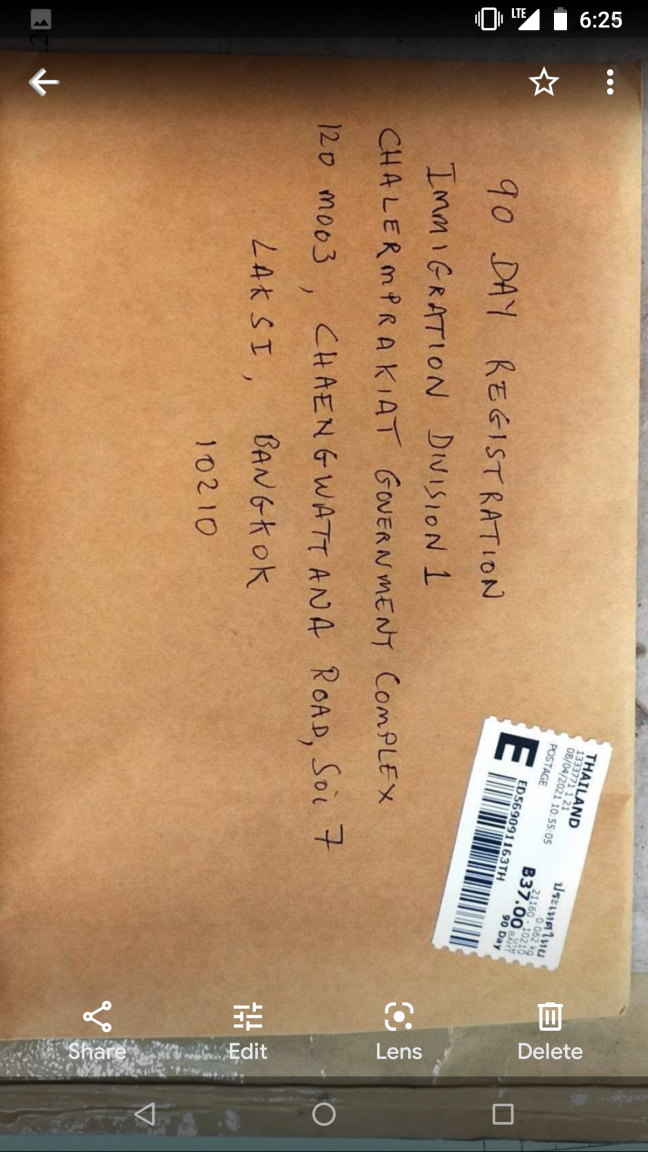 6:25
LTE
90 DAY REGISTRATION
IMMIGRATION DIVISION 1
CHALERMPRAKIAT GOVERNMENT COMPLEX
120 MOO3, CHAENGWATTANA ROAD, Soi 7
LAKSI, BANGKOK
10210
THAILAND
ประเทศไทย
08/04/2021 10:55:05
0.062 kg
21160 - 10210
POSTAGE
฿37.00
E
ED569091163TH
90 Day
Share
Edit
Lens
Delete